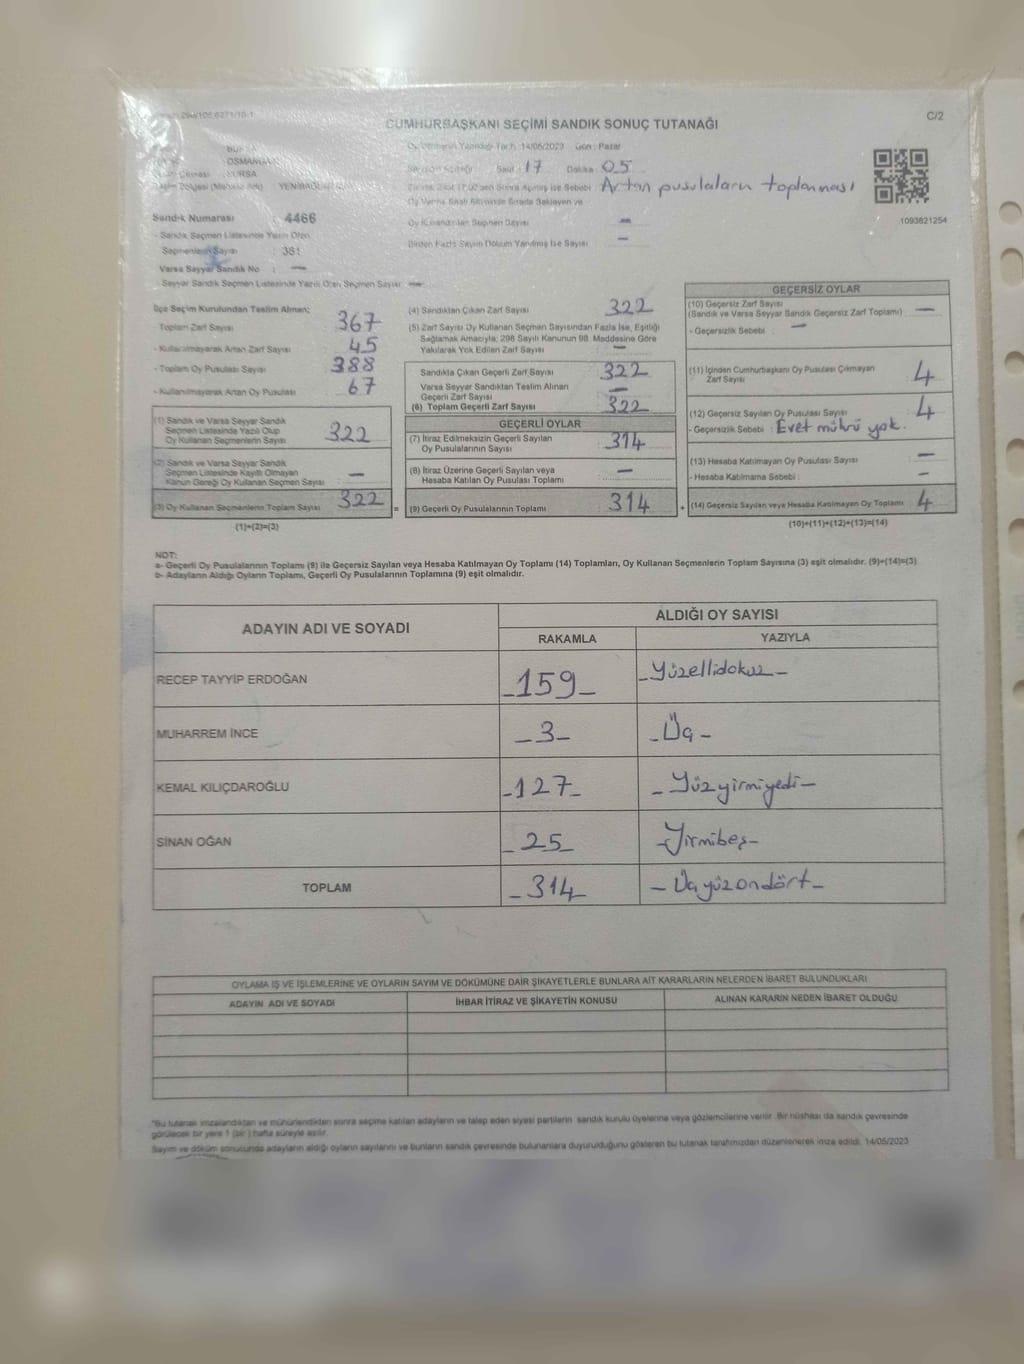 C/2
CUMHURBAŞKANI SEÇİMİ SANDIK SONUÇ TUTANAĞI
Oy Vermenin Yapıldığı Tarih: 14/05/2023 Gün: Pazar
OSMANGAZİ
Saat: 17 Dakika: 05
BURSA
Artan pusulaların toplanması
1093821254
Sandık Numarası : 4466
Oy Kullandırılan Seçmen Sayısı —
- Sandık Seçmen Listesinde Yazılı Olan
Seçmenlerin Sayısı : 381
Birden Fazla Sayım Döküm Yapılmış İse Sayısı —
Varsa Seyyar Sandık No : —
Seyyar Sandık Seçmen Listesinde Yazılı Olan Seçmen Sayısı —
İlçe Seçim Kurulundan Teslim Alınan;
Toplam Zarf Sayısı 367
- Kullanılmayarak Artan Zarf Sayısı 45
- Toplam Oy Pusulası Sayısı 388
- Kullanılmayarak Artan Oy Pusulası 67
(1) Sandık ve Varsa Seyyar Sandık
Seçmen Listesinde Yazılı Olup
Oy Kullanan Seçmenlerin Sayısı 322
(2) Sandık ve Varsa Seyyar Sandık
Seçmen Listesinde Kayıtlı Olmayan
Kanun Gereği Oy Kullanan Seçmen Sayısı —
(3) Oy Kullanan Seçmenlerin Toplam Sayısı 322 =
(1)+(2)=(3)
(4) Sandıktan Çıkan Zarf Sayısı 322
(5) Zarf Sayısı Oy Kullanan Seçmen Sayısından Fazla İse, Eşitliği
Sağlamak Amacıyla; 298 Sayılı Kanunun 98. Maddesine Göre
Yakılarak Yok Edilen Zarf Sayısı —
Sandıkta Çıkan Geçerli Zarf Sayısı 322
Varsa Seyyar Sandıktan Teslim Alınan
Geçerli Zarf Sayısı —
(6) Toplam Geçerli Zarf Sayısı 322
GEÇERLİ OYLAR
(7) İtiraz Edilmeksizin Geçerli Sayılan
Oy Pusulalarının Sayısı 314
(8) İtiraz Üzerine Geçerli Sayılan veya
Hesaba Katılan Oy Pusulası Toplamı —
(9) Geçerli Oy Pusulalarının Toplamı 314 +
GEÇERSİZ OYLAR
(10) Geçersiz Zarf Sayısı
(Sandık ve Varsa Seyyar Sandık Geçersiz Zarf Toplamı) —
- Geçersizlik Sebebi : —
(11) İçinden Cumhurbaşkanı Oy Pusulası Çıkmayan
Zarf Sayısı 4
(12) Geçersiz Sayılan Oy Pusulası Sayısı 4
- Geçersizlik Sebebi : Evet mührü yok.
(13) Hesaba Katılmayan Oy Pusulası Sayısı —
- Hesaba Katılmama Sebebi : —
(14) Geçersiz Sayılan veya Hesaba Katılmayan Oy Toplamı 4
(10)+(11)+(12)+(13)=(14)
NOT:
a- Geçerli Oy Pusulalarının Toplamı (9) ile Geçersiz Sayılan veya Hesaba Katılmayan Oy Toplamı (14) Toplamları, Oy Kullanan Seçmenlerin Toplam Sayısına (3) eşit olmalıdır. (9)+(14)=(3)
b- Adayların Aldığı Oyların Toplamı, Geçerli Oy Pusulalarının Toplamına (9) eşit olmalıdır.
ADAYIN ADI VE SOYADI
ALDIĞI OY SAYISI
RAKAMLA YAZIYLA
RECEP TAYYİP ERDOĞAN -159- -Yüzellidokuz-
MUHARREM İNCE -3- -Üç-
KEMAL KILIÇDAROĞLU -127- -Yüzyirmiyedi-
SİNAN OĞAN -25- -Yirmibeş-
TOPLAM -314- -Üçyüzondört-
OYLAMA İŞ VE İŞLEMLERİNE VE OYLARIN SAYIM VE DÖKÜMÜNE DAİR ŞİKAYETLERLE BUNLARA AİT KARARLARIN NELERDEN İBARET BULUNDUKLARI
ADAYIN ADI VE SOYADI İHBAR İTİRAZ VE ŞİKAYETİN KONUSU ALINAN KARARIN NEDEN İBARET OLDUĞU
*Bu tutanak imzalandıktan ve mühürlendikten sonra seçime katılan adayların ve talep eden siyasi partilerin sandık kurulu üyelerine veya gözlemcilerine verilir. Bir nüshası da sandık çevresinde
görülecek bir yere 1 (bir) hafta süreyle asılır.
Sayım ve döküm sonucunda adayların aldığı oyların sayılarını ve bunların sandık çevresinde bulunanlara duyurulduğunu gösteren bu tutanak tarafımızdan düzenlenerek imza edildi. 14/05/2023